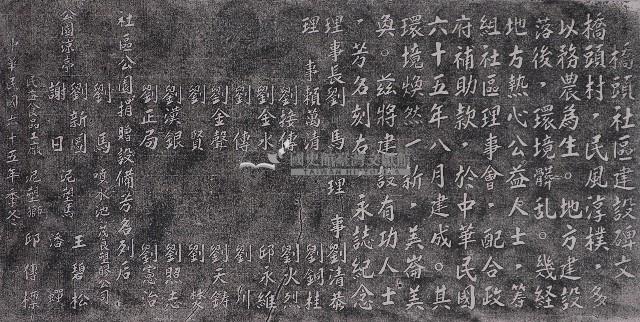 橋頭社區建設碑文
橋頭村，民風淳樸，多
以務農為生。地方建設
落後，環境髒亂。幾經
地方熱心公益人士，籌
組社區理事會，配合政
府補助款，於中華民國
六十五年八月建成。其
環境煥然一新，美崙美
奐。茲將建設有功人士
，芳名刻右，永誌紀念
理事長劉馬 理事劉清恭
理事賴萬清 劉鋼桂
劉接傳 劉火烈
劉金水 邱永維
劉傳 劉圳
劉金聲 劉天鑄
劉賢 劉樊
劉漢銀 劉照志
劉正局 劉憲治
社區公園捐贈設備芳名列后
劉馬 噴水池 茂良塑膠公司
公園涼亭 劉新圓 泥塑馬 王碧松
謝日 潘蟬
民立食品工廠 泥塑獅 邱傳標
中華民國六十五年季冬
國史館臺灣文獻館